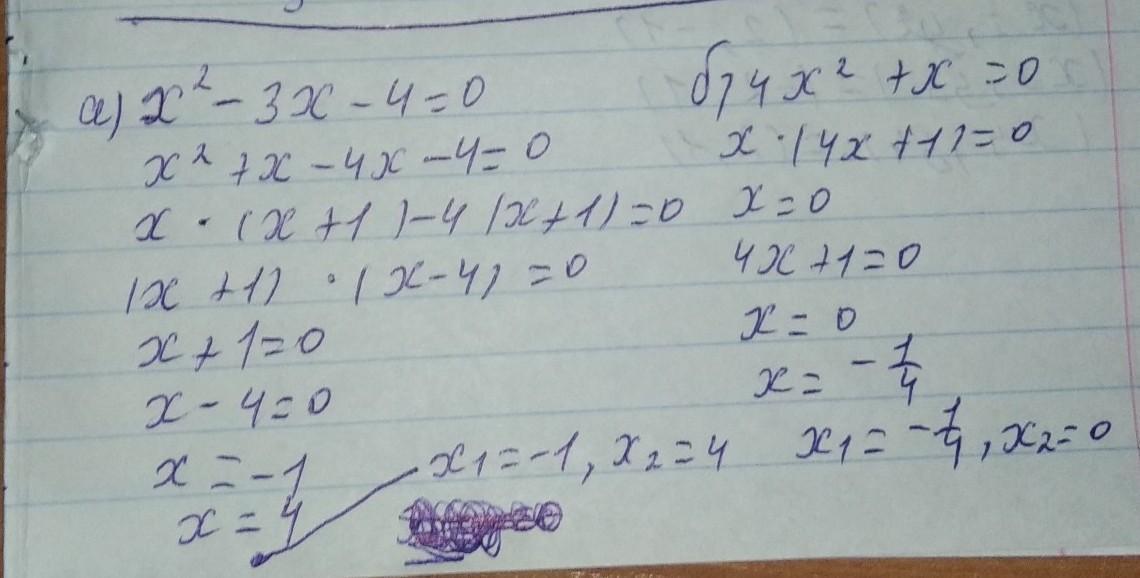 а) x² - 3x - 4 = 0
x² + x - 4x - 4 = 0
x · (x + 1) - 4 (x + 1) = 0
(x + 1) · (x - 4) = 0
x + 1 = 0
x - 4 = 0
x = -1
x = 4
x₁ = -1, x₂ = 4
б) 4x² + x = 0
x · (4x + 1) = 0
x = 0
4x + 1 = 0
x = 0
x = -1/4
x₁ = -1/4, x₂ = 0